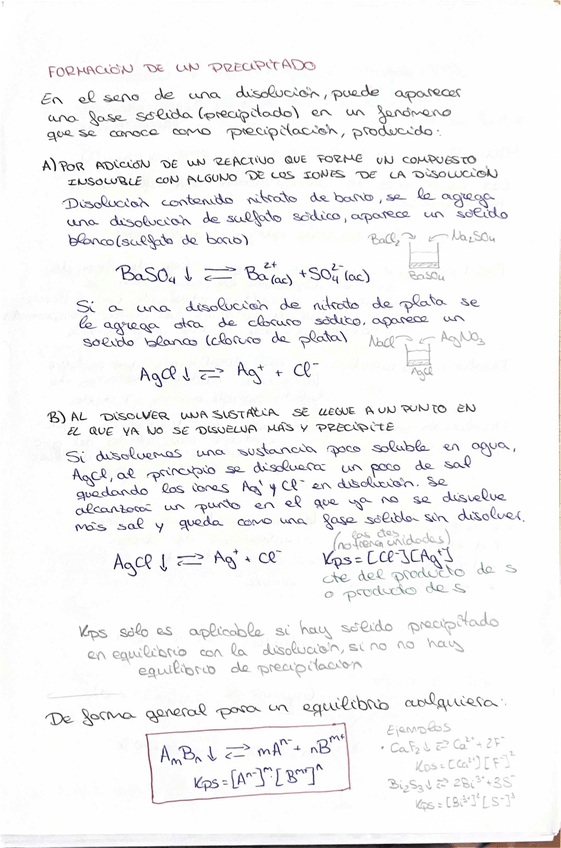 FORMACIÓN DE UN PRECIPITADO
En el seno de una disolución, puede aparecer
una fase sólida (precipitado) en un fenómeno
que se conoce como precipitación, producido:
A) POR ADICIÓN DE UN REACTIVO QUE FORME UN COMPUESTO
INSOLUBLE CON ALGUNO DE LOS IONES DE LA DISOLUCIÓN
Disolución contenido nitrato de bario, se le agrega
una disolución de sulfato sódico, aparece un sólido
blanco (sulfato de bario)
BaCl₂ Na₂SO₄
BaSO₄
BaSO₄ ↓ ⇌ Ba²⁺(ac) + SO₄²⁻(ac)
Si a una disolución de nitrato de plata se
le agrega otra de cloruro sódico, aparece un
solido blanco (cloruro de plata)
NaCl AgNO₃
AgCl
AgCl ↓ ⇌ Ag⁺ + Cl⁻
B) AL DISOLVER UNA SUSTACIA SE LLEGUE A UN PUNTO EN
EL QUE YA NO SE DISUELVA MÁS Y PRECIPITE
Si disolvemos una sustancia poco soluble en agua,
AgCl, al principio se disolverá un poco de sal
quedando los iones Ag⁺ y Cl⁻ en disolución. Se
alcanzará un punto en el que ya no se disuelve
más sal y queda como una fase sólida sin disolver.
(las ctes
no tienen unidades)
AgCl ↓ ⇌ Ag⁺ + Cl⁻ Kps = [Cl⁻][Ag⁺]
cte del producto de s
o producto de s
Kps sólo es aplicable si hay sólido precipitado
en equilibrio con la disolución, si no no hay
equilibrio de precipitación
De forma general para un equilibrio cualquiera:
AmBn ↓ ⇌ mAⁿ⁻ + nBᵐ⁺
Kps = [Aⁿ⁻]ᵐ · [Bᵐ⁺]ⁿ
Ejemplos
· CaF₂ ↓ ⇌ Ca²⁺ + 2F⁻
Kps = [Ca²⁺][F⁻]²
Bi₂S₃ ↓ ⇌ 2Bi³⁺ + 3S⁻
Kps = [Bi³⁺]²[S⁻]³